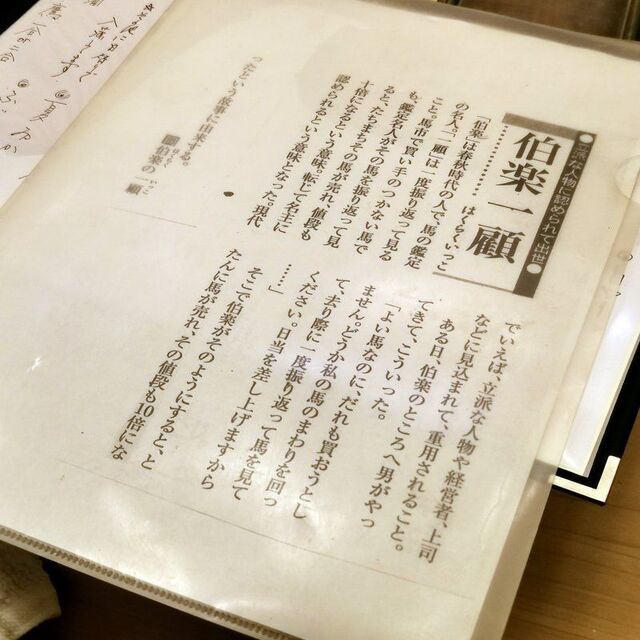 ●立派な人物に認められて出世●
伯楽一顧
はくらくいっこ
「伯楽」は春秋時代の人で、馬の鑑定
の名人。「一顧」は一度振り返って見る
こと。馬市で買い手のつかない馬で
も、鑑定名人がその馬を振り返って見
ると、たちまちその馬が売れ、値段も
十倍になるという意味。転じて名手に
認められるという意味になった。現代
でいえば、立派な人物や経営者、上司
などに見込まれて、重用されること。
ある日、伯楽のところへ男がやっ
てきて、こういった。
「よい馬なのに、だれも買おうとし
ません。どうか私の馬のまわりを回っ
て、去り際に一度振り返って馬を見て
ください。日当を差し上げますから
……」
そこで伯楽がそのようにすると、と
たんに馬が売れ、その値段も10倍にな
ったという故事に由来する。
伯楽の一顧